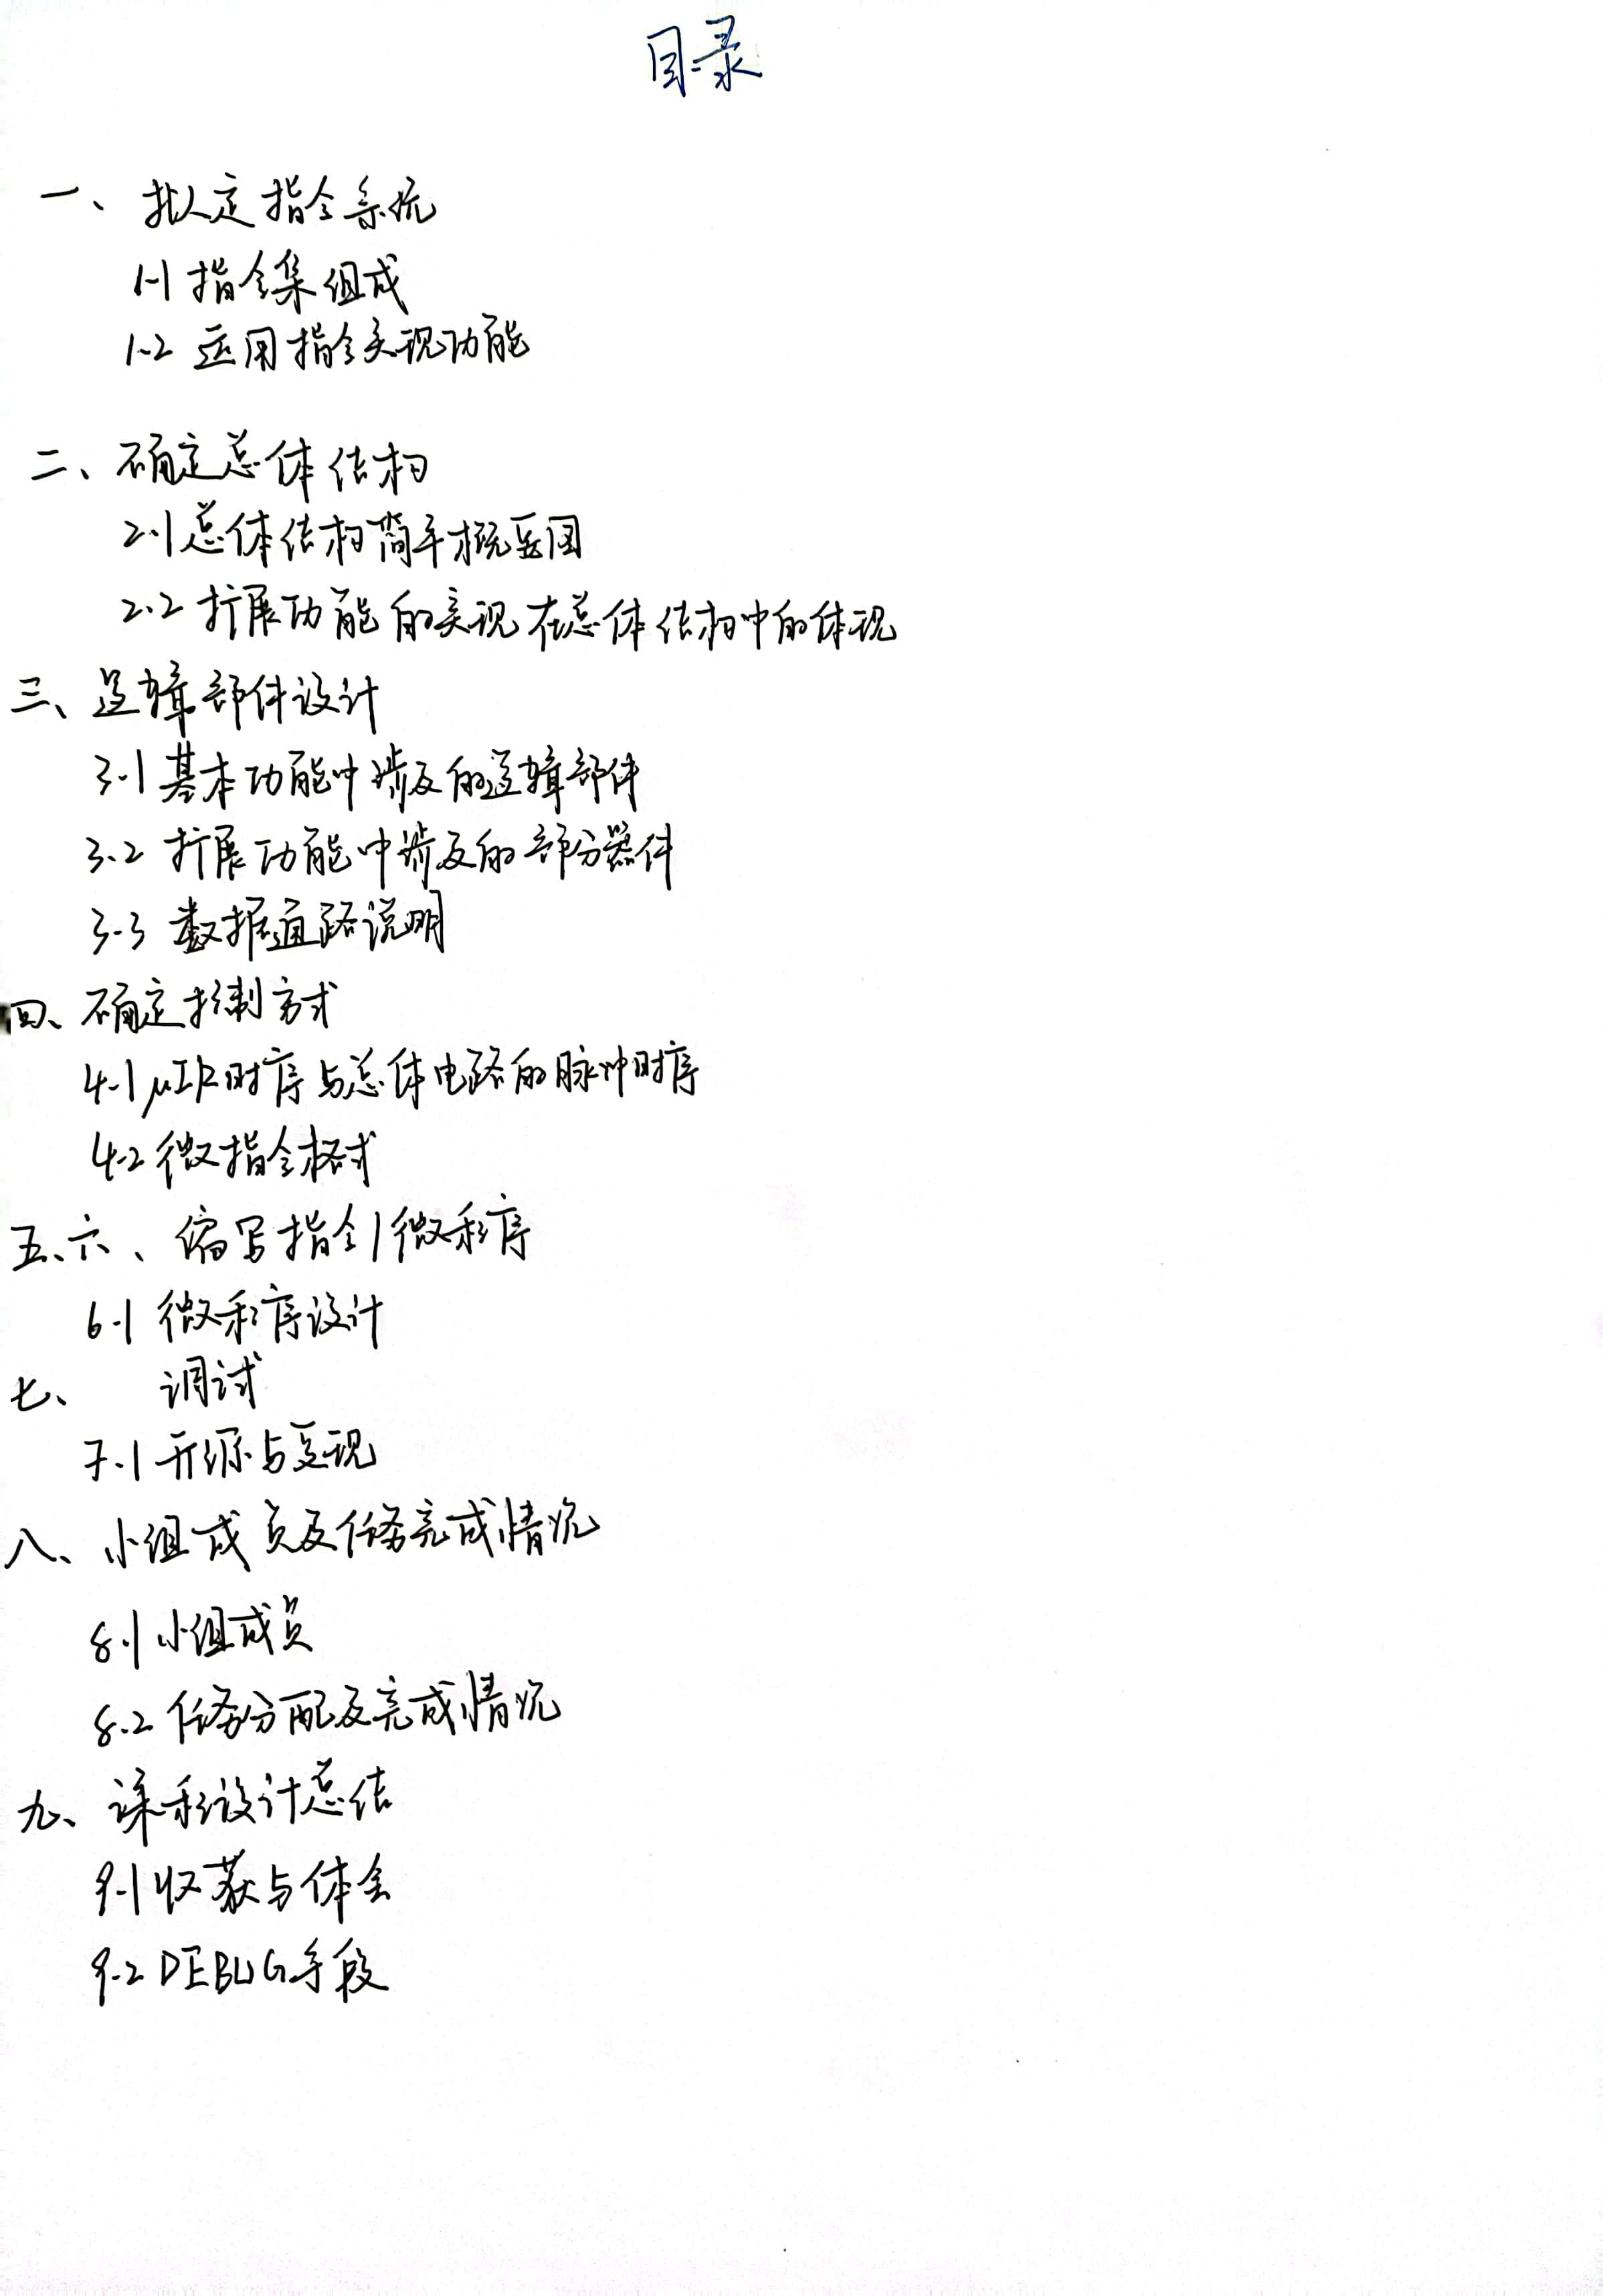 目录
一、拟定指令系统
1-1 指令集组成
1-2 运用指令实现功能
二、确定总体结构
2.1 总体结构简单概要图
2.2 扩展功能的实现在总体结构中的体现
三、逻辑部件设计
3-1 基本功能中涉及的逻辑部件
3.2 扩展功能中涉及的部分器件
3-3 数据通路说明
四、确定控制方式
4-1 μIR时序与总体电路的脉冲时序
4-2 微指令格式
五、六、编写指令/微程序
6-1 微程序设计
七、调试
7.1 开源与复现
八、小组成员及任务完成情况
8.1 小组成员
8.2 任务分配及完成情况
九、课程设计总结
9-1 收获与体会
9-2 DEBUG手段